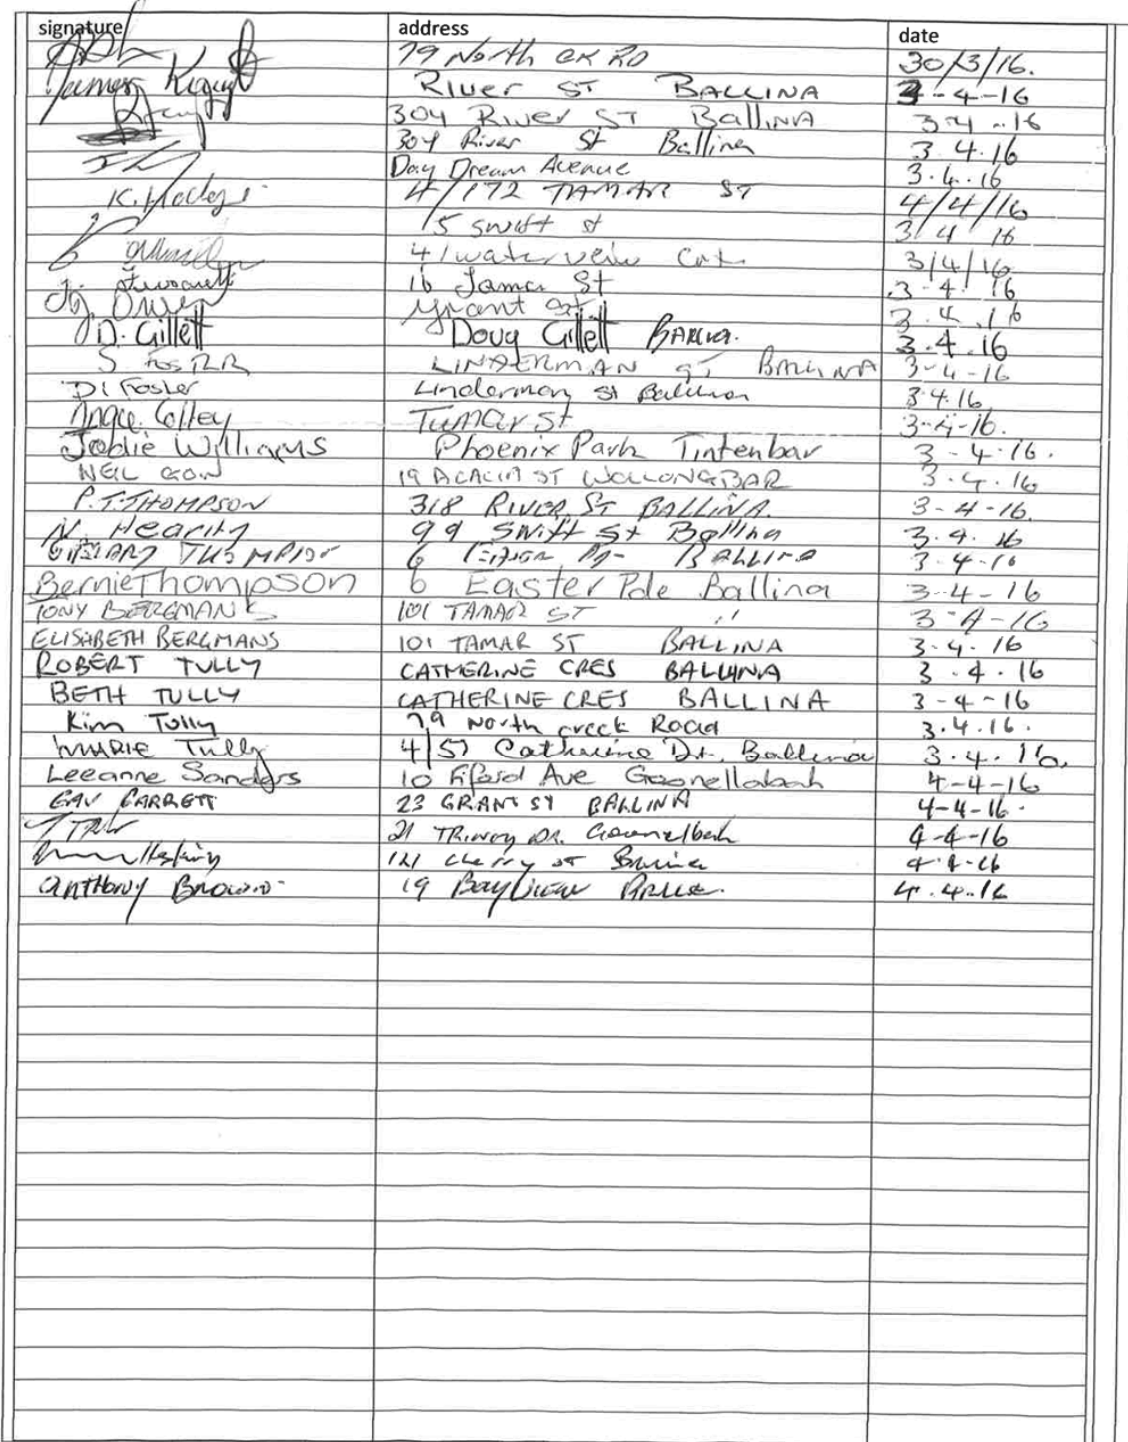 signature address date
79 North CK RD 30/3/16.
James River ST BALLINA 3-4-16
304 River ST BALLINA 3-4-16
304 River St Ballina 3.4.16
Day Dream Avenue 3.4.16
K. 4/172 TAMAR ST 4/4/16
15 swift st 3/4/16
41 water veiw Crt 3/4/16
16 Tamar St 3.4.16
Grant St 3.4.16
D. Gillett Doug Gillett 3.4.16
S FOSTER LINDERMAN ST BALLINA 3-4-16
DI Foster Linderman St Ballina 3.4.16
Angie Colley Tamar St 3-4-16.
Jodie Williams Phoenix Park Tintenbar 3-4-16.
NEIL GOW 19 ACACIA ST WOLLONGBAR 3.4.16
P.T. THOMPSON 318 RIVER ST BALLINA. 3-4-16.
N. Hearity 99 Swift St Ballina 3.4.16
6 BALLINA 3-4-16
Bernie Thompson 6 Easter Pde Ballina 3-4-16
TONY BERGMANS 101 TAMAR ST " 3-4-16
ELISABETH BERGMANS 101 TAMAR ST BALLINA 3.4.16
ROBERT TULLY CATHERINE CRES BALLINA 3.4.16
BETH TULLY CATHERINE CRES BALLINA 3-4-16
Kim Tully 79 North creek Road 3.4.16.
Tully 4/51 Catherine Dr. Ballina 3.4.16.
Leeanne Sanders 10 Fifield Ave Goonellabah 4-4-16
GAV GARRETT 23 GRANT ST BALLINA 4-4-16.
21 Dr. 4-4-16
121 Cherry st 4.4.16
Anthony Brown 19 Bayview 4.4.16